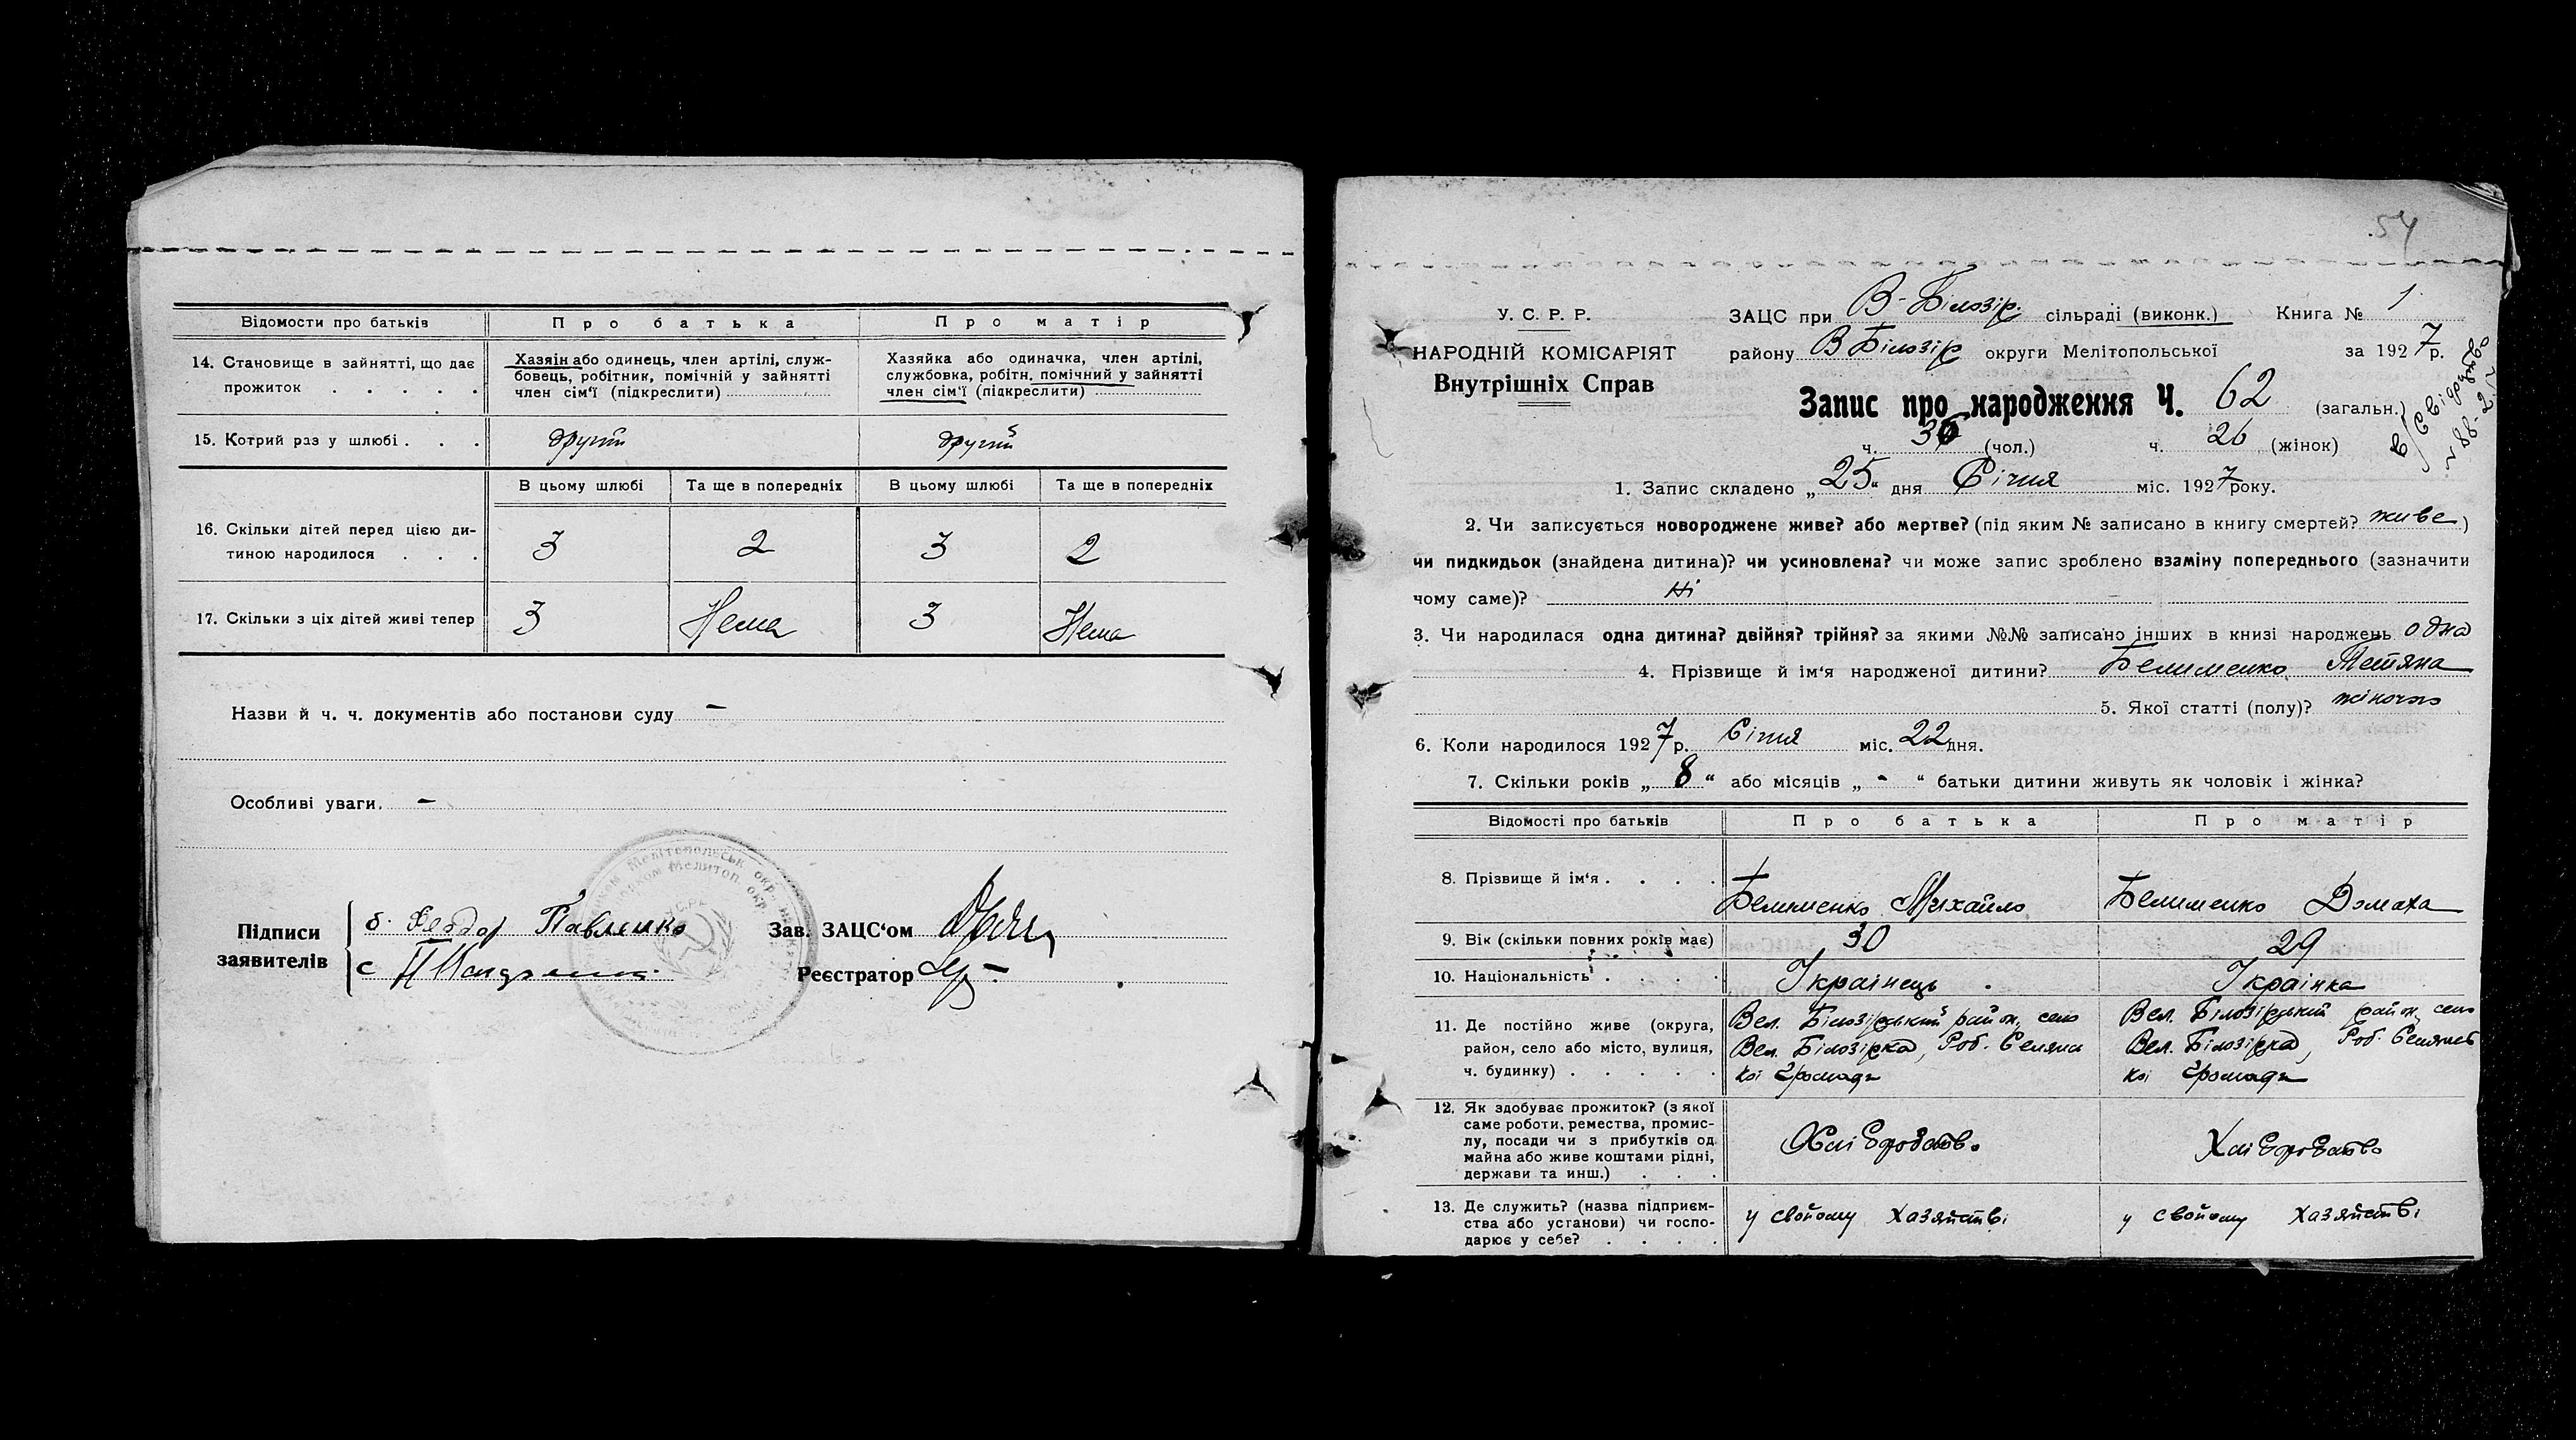 Відомости про батьків Про батька Про матір
14. Становище в зайнятті, що дає прожиток . . . . .
Хазяін або одинець, член артілі, служ-
бовець, робітник, помічній у зайнятті
член сім'ї (підкреслити)
Хазяйка або одиначка, член артілі,
службовка, робітн. помічний у зайнятті
член сім'ї (підкреслити)
15. Котрий раз у шлюбі . . . другий другий
В цьому шлюбі Та ще в попередніх В цьому шлюбі Та ще в попередніх
16. Скільки дітей перед цією ди-
тиною народилося . . . 3 2 3 2
17. Скільки з ціх дітей живі тепер 3 Нема 3 Нема
Назви й ч. ч. документів або постанови суду –
Особливі уваги. –
Підписи
заявителів
б. Федор Павленко
с
Зав. ЗАЦС'ом
Реєстратор
54
У. С. Р. Р.
НАРОДНІЙ КОМІСАРІЯТ
Внутрішніх Справ
ЗАЦС при В-Білозір. сільраді (виконк.) Книга № 1
району В Білозір округи Мелітопольської за 1927 р.
Запис про народження Ч. 62 (загальн.)
ч. 36 (чол.) ч. 26 (жінок)
1. Запис складено „25“ дня Січня міс. 1927 року.
2. Чи записується новороджене живе? або мертве? (під яким № записано в книгу смертей? живе)
чи пидкидьок (знайдена дитина)? чи усиновлена? чи може запис зроблено взаміну попереднього (зазначити
чому саме)? Ні
3. Чи народилася одна дитина? двійня? трійня? за якими №№ записано інших в книзі народжень одна
4. Прізвище й ім'я народженої дитини? Белименко Тетяна
5. Якої статті (полу)? жіночо
6. Коли народилося 1927 р. Січня міс. 22 дня.
7. Скільки років „8“ або місяців „-“ батьки дитини живуть як чоловік і жінка?
Відомості про батьків Про батька Про матір
8. Прізвище й ім'я . . . . Белименко Михайло Белименко Домаха
9. Вік (скільки повних років має) 30 29
10. Національність . . . . Українець Українка
11. Де постійно живе (округа,
район, село або місто, вулиця,
ч. будинку) . . . . .
Вел. Білозірський район, село
Вел. Білозірка, Роб. Селянс
кої Громади
Вел. Білозірський район, село
Вел. Білозірка, Роб. Селянсь
кої Громади
12. Як здобуває прожиток? (з якої
саме роботи, ремества, промис-
лу, посади чи з прибутків од
майна або живе коштами рідні,
держави та инш.) . . .
Хліборобство Хліборобство
13. Де служить? (назва підприєм-
ства або установи) чи госпо-
дарює у себе? . . . .
у свойому хазяйстві у свойому хазяйстві